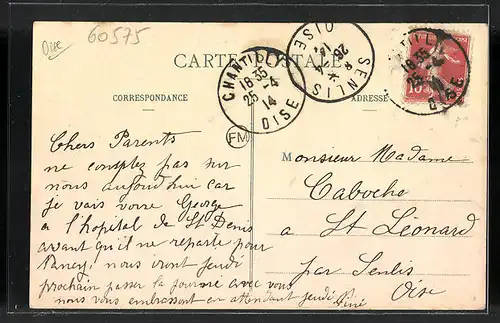 Oise
60575
CARTE POSTALE
CHANTILLY
18 35
25 -4
14
OISE
SENLIS
OISE
18 35
OISE
10
CORRESPONDANCE
ADRESSE
FM
Chers Parents
ne comptez pas sur
nous aujourd'hui car
je vais voire George
a l'hopital de St Denis
avant qu'il ne reparte pour
Nancy, nous iront jeudi
prochain passer la journée avec vous
nous vous embrassont en attendant jeudi
Monsieur Madame
Caboche
a St Léonard
par Senlis
Oise